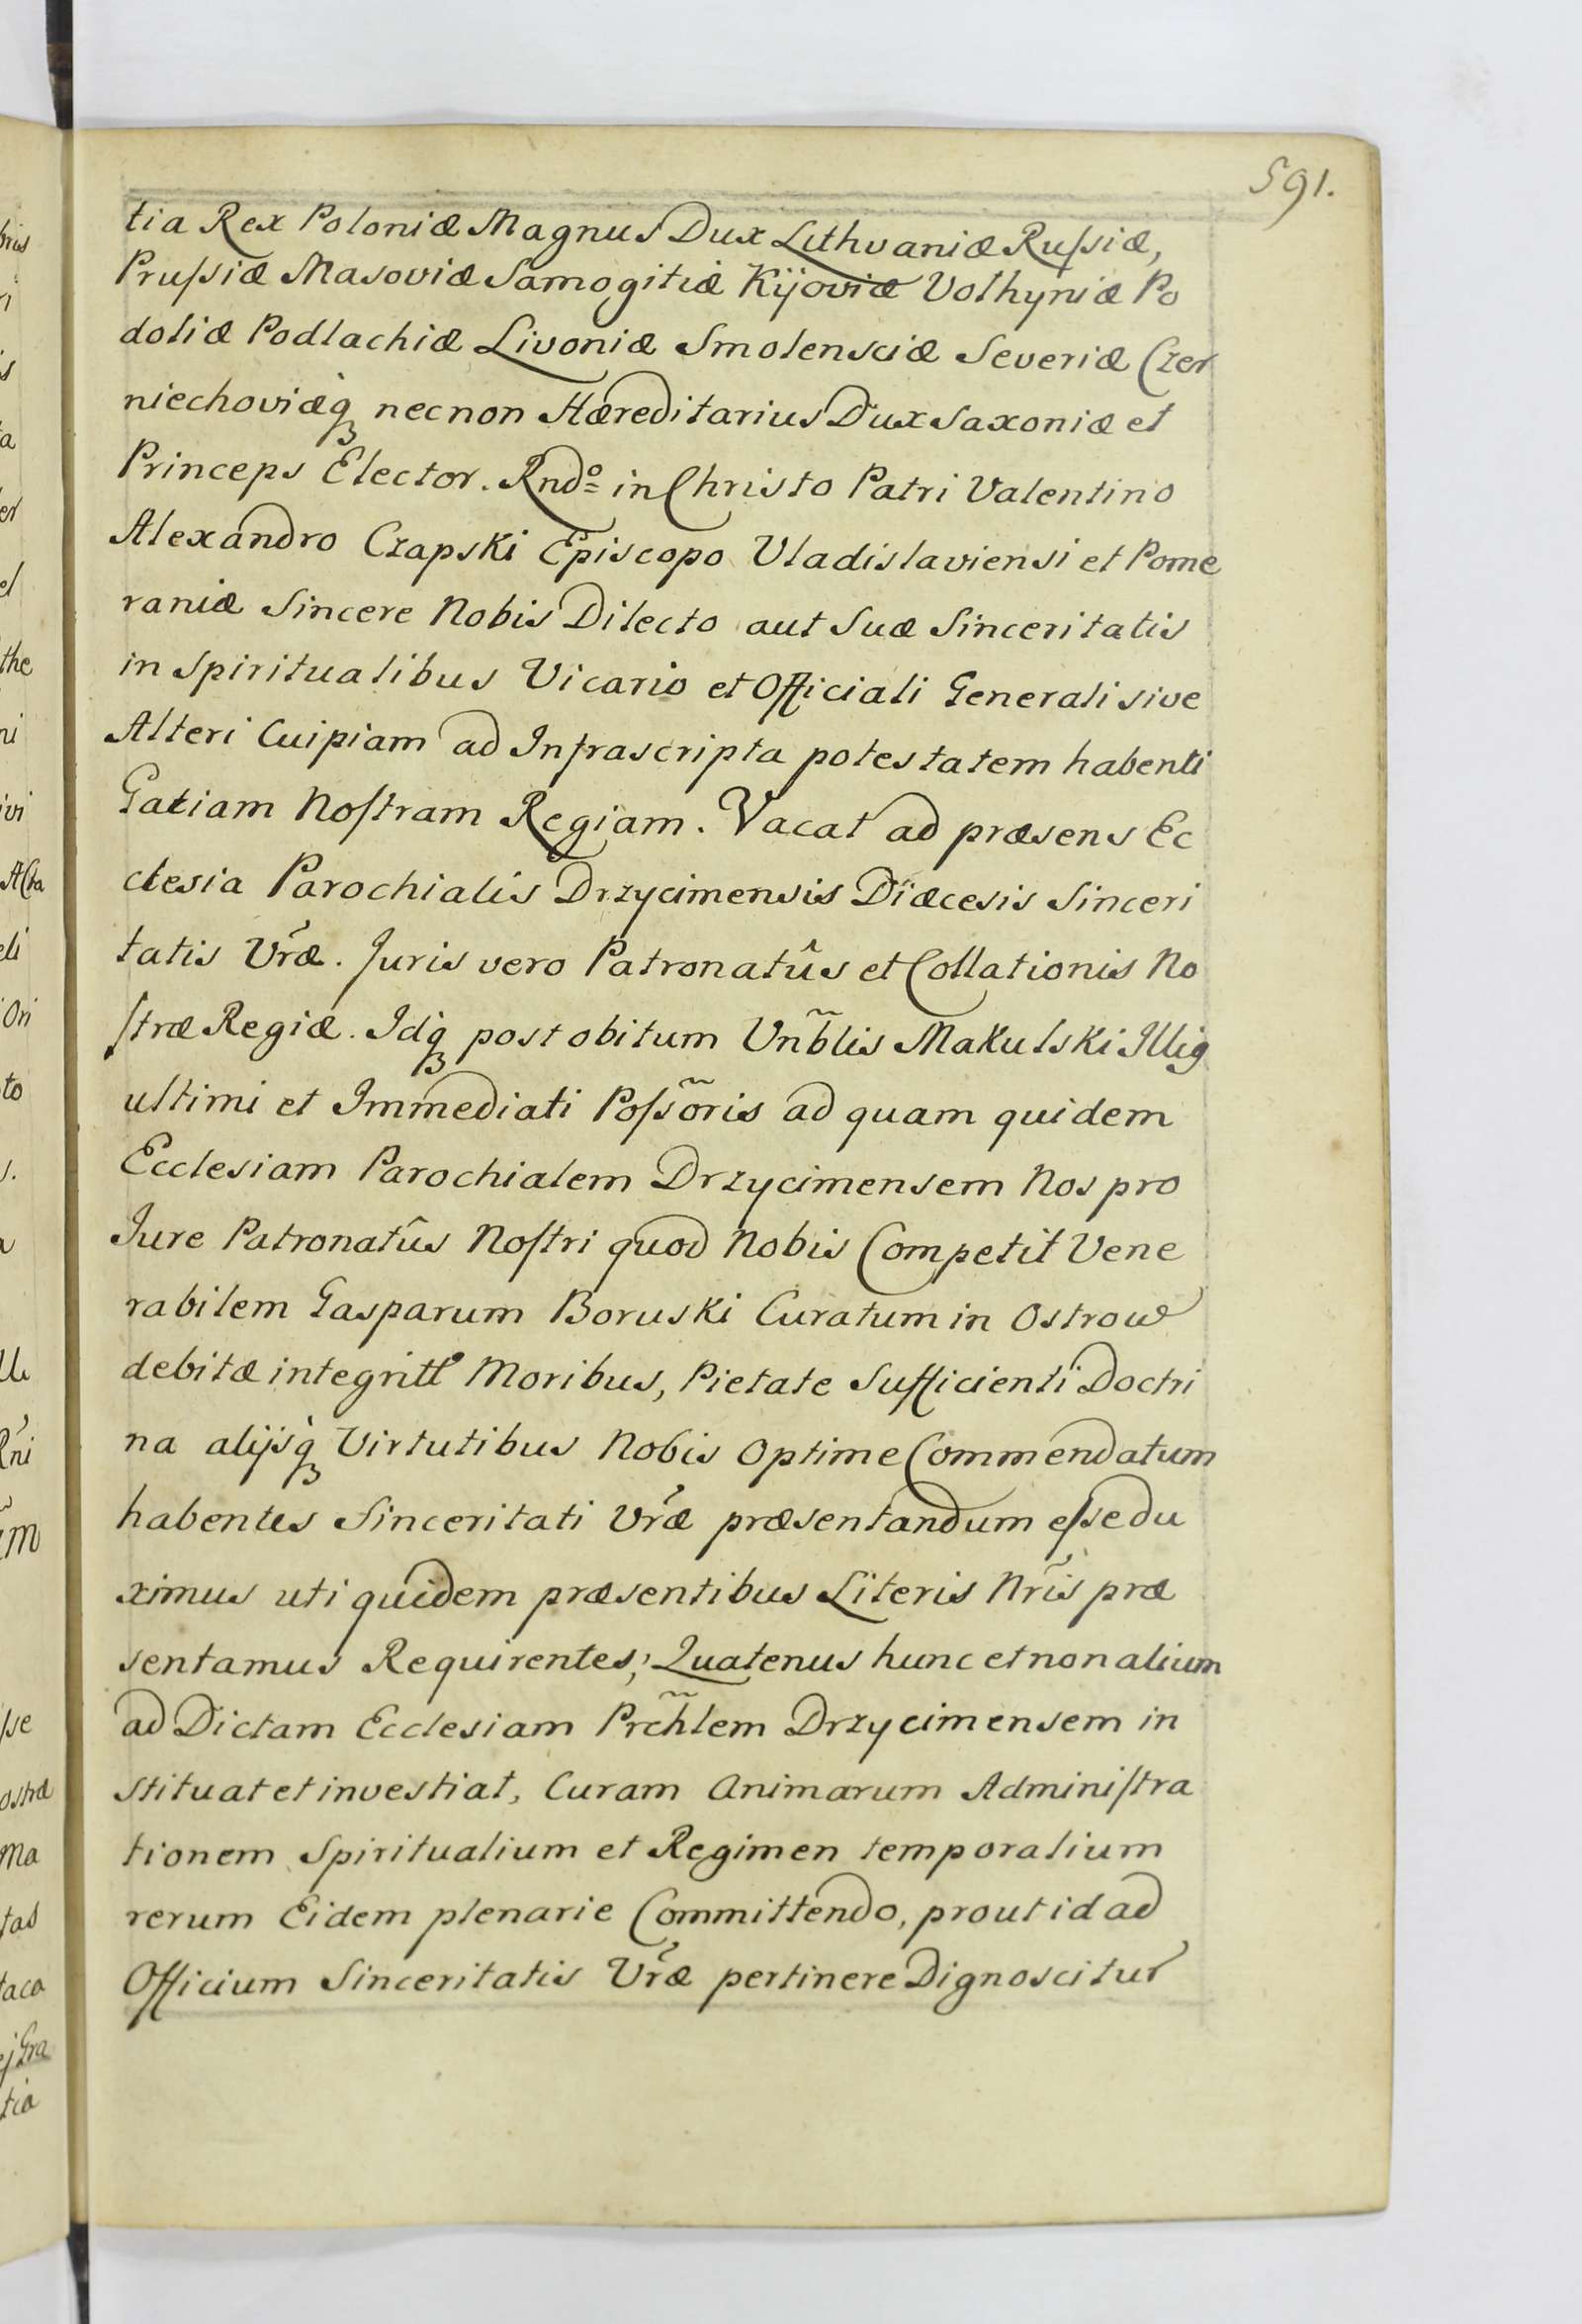 591.
tia Rex Poloniæ Magnus Dux Lithvaniæ Ruſsiæ,
Pruſsiæ Masoviæ Samogitiæ Kijoviæ Volhyniæ Po
doliæ Podlachiæ Livoniæ Smolensciæ Severiæ Czer
niechoviæq́ꝫ necnon Hæreditarius Dux Saxoniæ et
Princeps Elector. Rndo in Christo Patri Valentino
Alexandro Czapski Episcopo Vladislaviensi et Pome
raniæ Sincere Nobis Dilecto aut Suæ Sinceritatis
in Spiritualibus Vicario et Officiali Generali sive
Alteri Cuipiam ad Infrascripta potestatem habenti
Gatiam Noſtram Regiam. Vacat ad præsens Ec
clesia Parochialis Drzycimensis Diæcesis Sinceri
tatis Vr̃æ. Juris vero Patronatûs et Collationis No
ſtræ Regiæ. Idq́ꝫ post obitum Vnb̃lis Makulski Illig
ultimi et Immediati Poſsõris ad quam quidem
Ecclesiam Parochialem Drzycimensem Nos pro
Jure Patronatûs Noſtri quod Nobis Competit Vene
rabilem Gasparum Boruski Curatum in Ostrow
debitæ integritte Moribus, Pietate Sufficienti Doctri
na alijsq́ꝫ Virtutibus Nobis Optime Commendatum
habentes Sinceritati Vr̃æ præsentandum eſse du
ximus uti quidem præsentibus Literis Nr̃is præ
sentamus Requirentes; Quatenus hunc et non alium
ad Dictam Ecclesiam Prch̃lem Drzycimensem in
stituat et investiat, Curam Animarum Adminiſtra
tionem Spiritualium et Regimen temporalium
rerum Eidem plenarie Committendo, prout id ad
Officium Sinceritatis Vr̃æ pertinere Dignoscitur